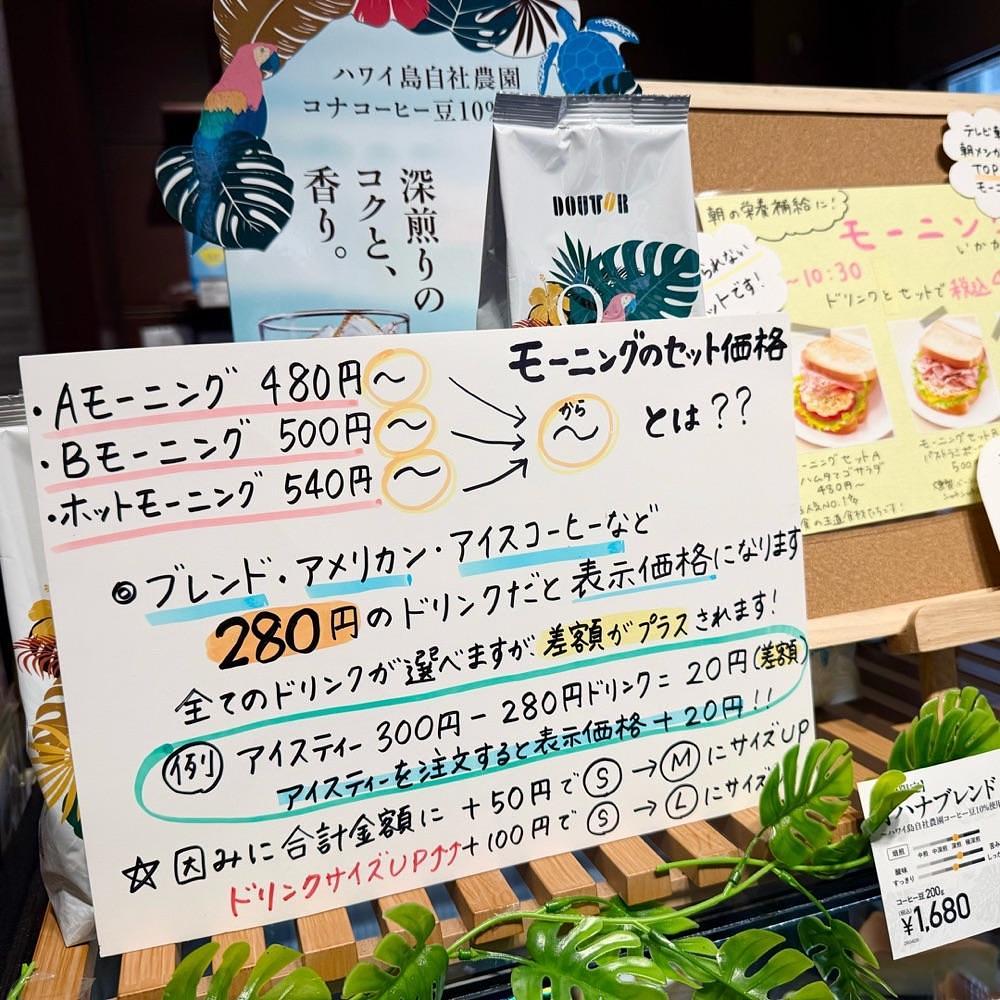 ハワイ島自社農園
コナコーヒー豆10%
深煎りの
コクと、
香り。
DOUTOR
モーニングのセット価格
・Aモーニング 480円〜
・Bモーニング 500円〜
・ホットモーニング 540円〜
から
〜
とは??
◎ブレンド・アメリカン・アイスコーヒーなど
280円のドリンクだと表示価格になります
全てのドリンクが選べますが、差額がプラスされます!
例 アイスティー 300円 − 280円ドリンク = 20円(差額)
アイスティーを注文すると表示価格+20円!!
☆因みに合計金額に +50円でⓈ→ⓂにサイズUP
ドリンクサイズUP⤴⤴+100円でⓈ→Ⓛにサイズ
朝の栄養補給に!
モーニン
いかが
〜10:30
ドリンクとセットで税込4
られない
ットです!
テレビ朝
朝メンが
TOP
モー
ーニングセットA
ハムタマゴサラダ
480円〜
人気NO.1
食の王道食材たちです!
モーニングセットB
500
ハナブレンド
〜ハワイ島自社農園コーヒー豆10%使用
焙煎 中煎 中深煎 深煎 極深煎
酸味
すっきり
コーヒー豆200g
(税込)¥1,680